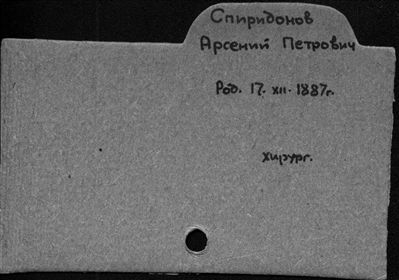 Спиридонов
Арсений Петрович
Род. 17. XII. 1887г.
хирург.